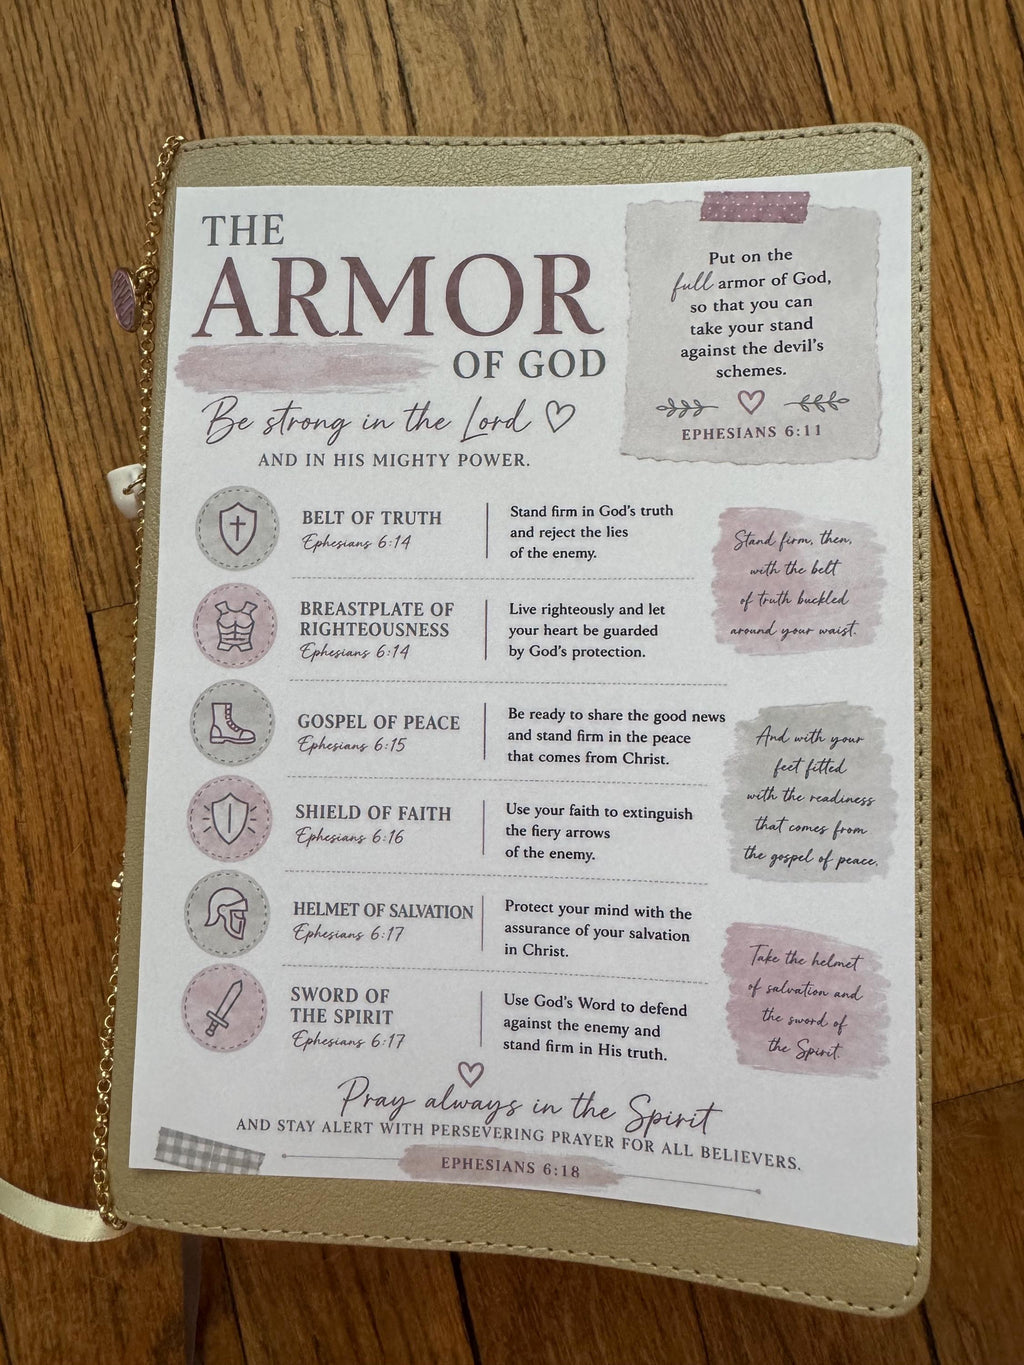 THE
ARMOR
OF GOD
Be strong in the Lord
AND IN HIS MIGHTY POWER.
Put on the
full armor of God,
so that you can
take your stand
against the devil's
schemes.
EPHESIANS 6:11
BELT OF TRUTH
Ephesians 6:14
Stand firm in God's truth
and reject the lies
of the enemy.
BREASTPLATE OF
RIGHTEOUSNESS
Ephesians 6:14
Live righteously and let
your heart be guarded
by God's protection.
Stand firm, then,
with the belt
of truth buckled
around your waist.
GOSPEL OF PEACE
Ephesians 6:15
Be ready to share the good news
and stand firm in the peace
that comes from Christ.
SHIELD OF FAITH
Ephesians 6:16
Use your faith to extinguish
the fiery arrows
of the enemy.
And with your
feet fitted
with the readiness
that comes from
the gospel of peace.
HELMET OF SALVATION
Ephesians 6:17
Protect your mind with the
assurance of your salvation
in Christ.
SWORD OF
THE SPIRIT
Ephesians 6:17
Use God's Word to defend
against the enemy and
stand firm in His truth.
Take the helmet
of salvation and
the sword of
the Spirit.
Pray always in the Spirit
AND STAY ALERT WITH PERSEVERING PRAYER FOR ALL BELIEVERS.
EPHESIANS 6:18